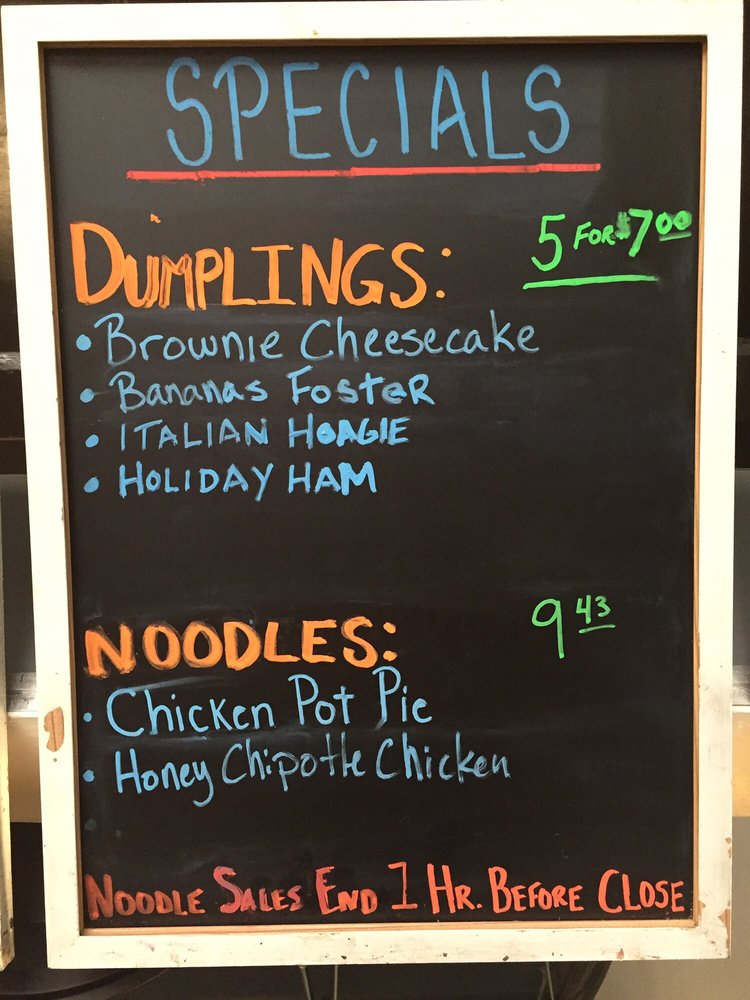 SPECIALS
DUMPLINGS: 5 FOR $7.00
• Brownie Cheesecake
• Bananas Foster
• ITALIAN HOAGIE
• HOLIDAY HAM
NOODLES: 9 43
• Chicken Pot Pie
• Honey Chipotle Chicken
NOODLE SALES END 1 HR. BEFORE CLOSE